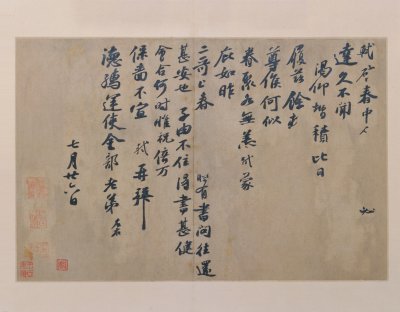 軾啓春中 必
達久不聞
渴仰增積比日
履茲餘熱
尊候何似
眷聚各無恙軾蒙
庇如昨
二哥上春 時有書問往還
甚安也子由不住得書甚健
會合何時惟祝倍万
保嗇不宣 軾再拜
德孺運使金部老弟
七月廿六日